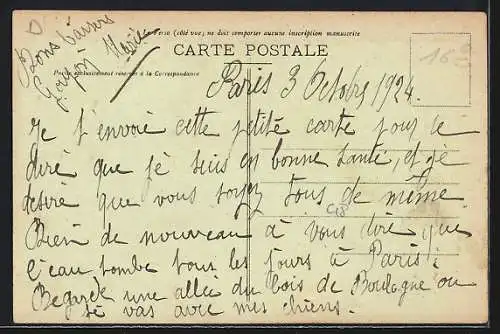 Le Verso (côté vue) ne doit comporter aucune inscription manuscrite
CARTE POSTALE
Partie exclusivement réservée à la Correspondance
Bons baisers
Marie
16
Paris 3 Octobre 1924.
Je t'envoie cette petite carte pour te
dire que je suis en bonne santé, et je
desire que vous soyez tous de même.
Rien de nouveau à vous dire que
l'eau tombe tous les jours à Paris.
Regarde une allée du bois de Boulogne ou
je vas avec mes chiens.